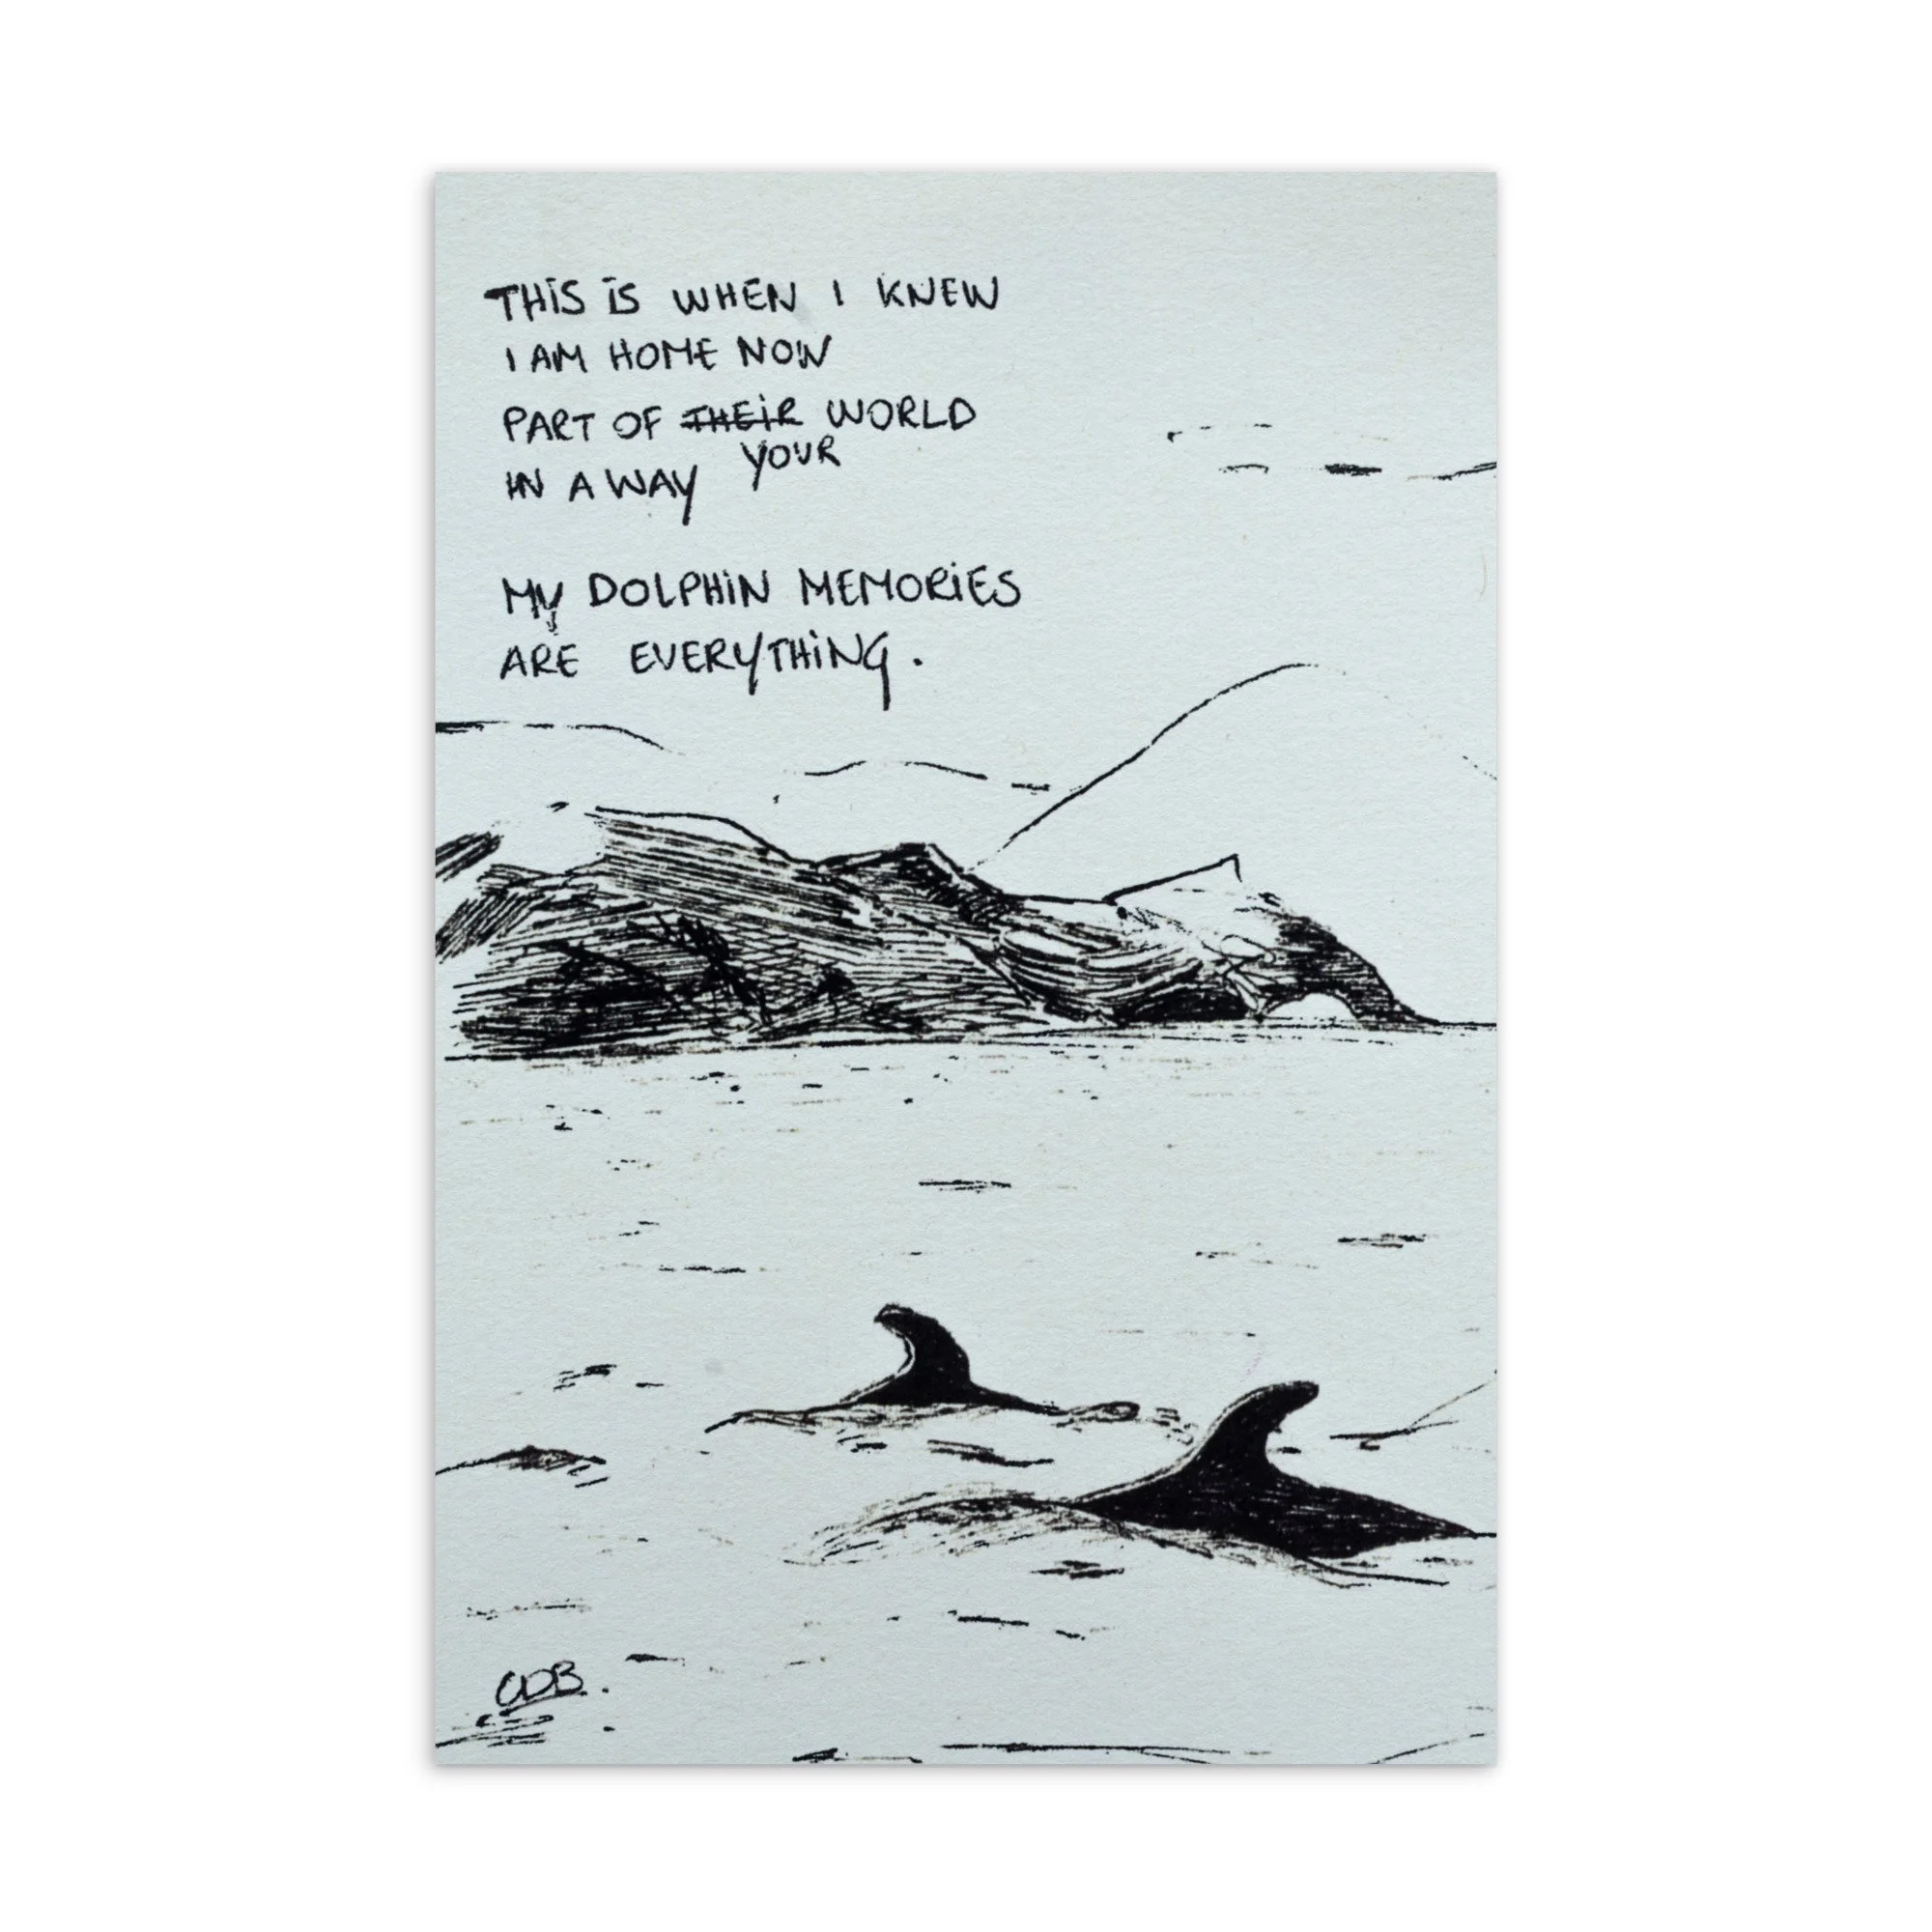 THIS IS WHEN I KNEW
I AM HOME NOW
PART OF THEIR WORLD
YOUR
IN A WAY
MY DOLPHIN MEMORIES
ARE EVERYTHING.
CDB.